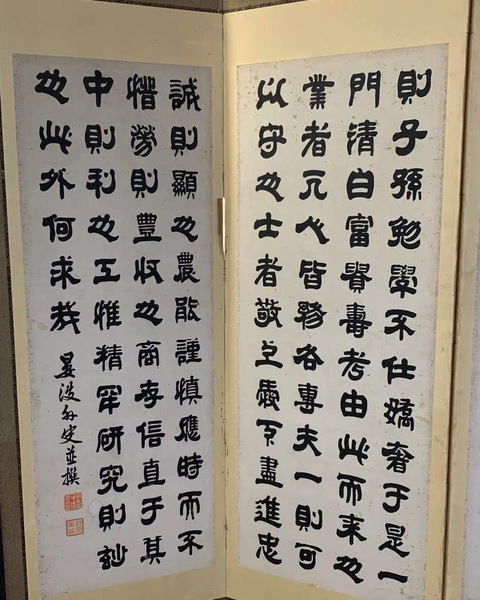 則子孫勉學不仕嬌奢于是一
門清白富貴壽考由此而来也
業者凡人皆務各專夫一則可
以守也士者敬上愛下盡進忠
誠則顯也農能謹慎應時而不
惜勞則豐收也商存信直于其
中則利也工惟精罕研究則妙
也此外何求哉
外史並撰